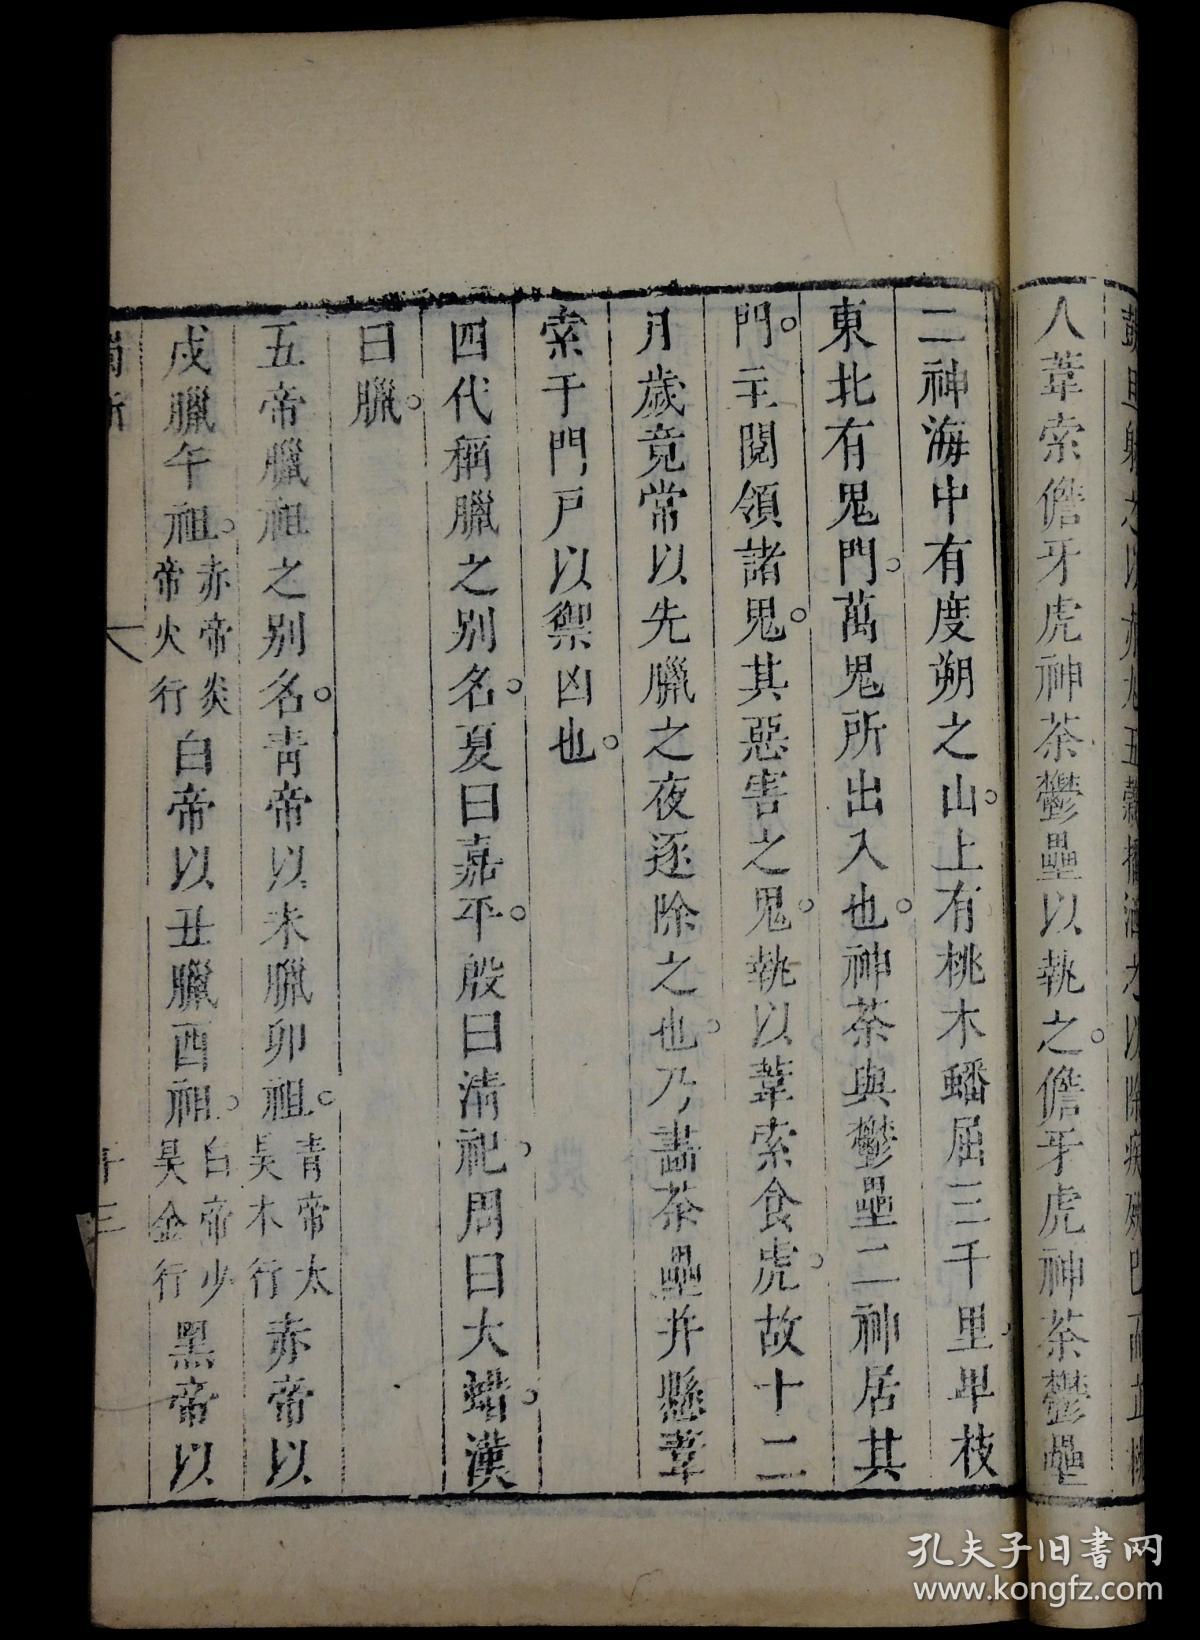 人葦索儋牙虎神荼鬱壘以執之。儋牙虎神荼鬱壘
二神海中有度朔之山。上有桃木蟠屈三千里卑枝
東北有鬼門。萬鬼所出入也。神荼與鬱壘二神居其
門。主閱領諸鬼。其惡害之鬼。執以葦索食虎。故十二
月歲竟常以先臘之夜逐除之也。乃畫荼壘并懸葦
索于門戶以禦凶也。
四代稱臘之別名。夏曰嘉平。殷曰清祀。周曰大蜡。漢
曰臘。
五帝臘祖之別名。青帝以未臘卯祖。青帝太昊木行赤帝以
戌臘午祖。赤帝炎帝火行白帝以丑臘酉祖。白帝少昊金行黑帝以
孔夫子旧书网
www.kongfz.com